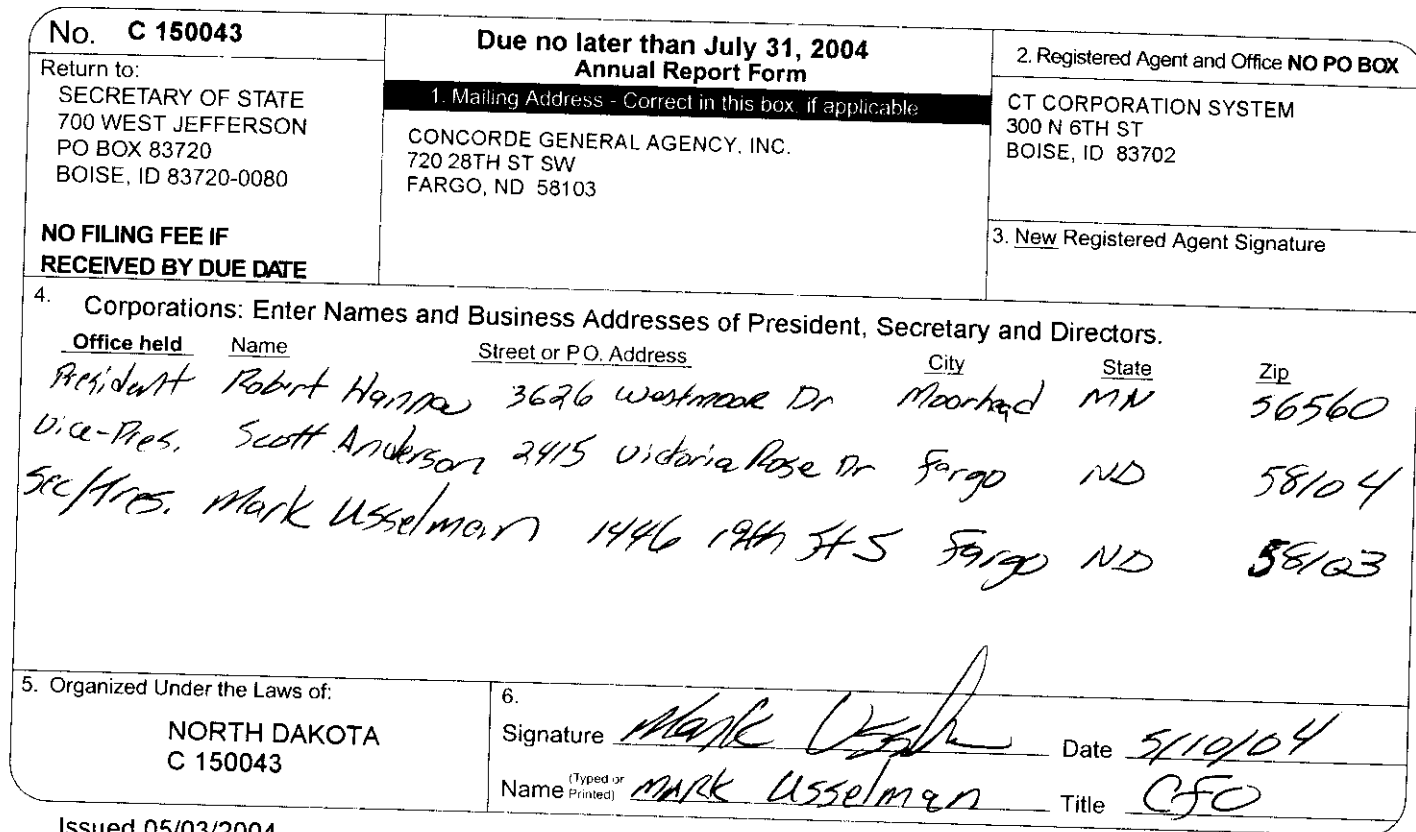 No. C 150043
Return to:
SECRETARY OF STATE
700 WEST JEFFERSON
PO BOX 83720
BOISE, ID 83720-0080
NO FILING FEE IF
RECEIVED BY DUE DATE
Due no later than July 31, 2004
Annual Report Form
1. Mailing Address - Correct in this box, if applicable
CONCORDE GENERAL AGENCY, INC.
720 28TH ST SW
FARGO, ND 58103
2. Registered Agent and Office NO PO BOX
CT CORPORATION SYSTEM
300 N 6TH ST
BOISE, ID 83702
3. New Registered Agent Signature
4. Corporations: Enter Names and Business Addresses of President, Secretary and Directors.
Office held Name Street or P.O. Address City State Zip
President Robert Hanna 3626 Westmoor Dr Moorhead MN 56560
Vice-Pres. Scott Anderson 2415 Victoria Rose Dr Fargo ND 58104
Sec/Tres. Mark Usselman 1446 19th St S Fargo ND 58103
5. Organized Under the Laws of:
NORTH DAKOTA
C 150043
6.
Signature Mark Date 5/10/04
Name (Typed or Printed) MARK Usselman Title CFO
Issued 05/03/2004